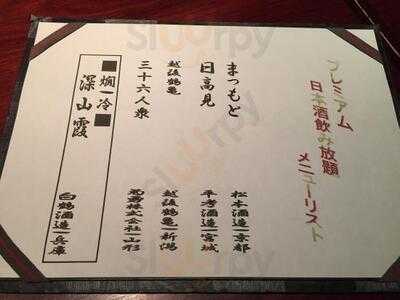 プレミアム
日本酒飲み放題
メニューリスト
まつもと
松本酒造ー京都
日高見
平孝酒造ー宮城
越後鶴亀
越後鶴亀ー新潟
三十六人衆
菊勇株式会社ー山形
■燗ー冷■
深山霞
白鶴酒造ー兵庫
sluurpy